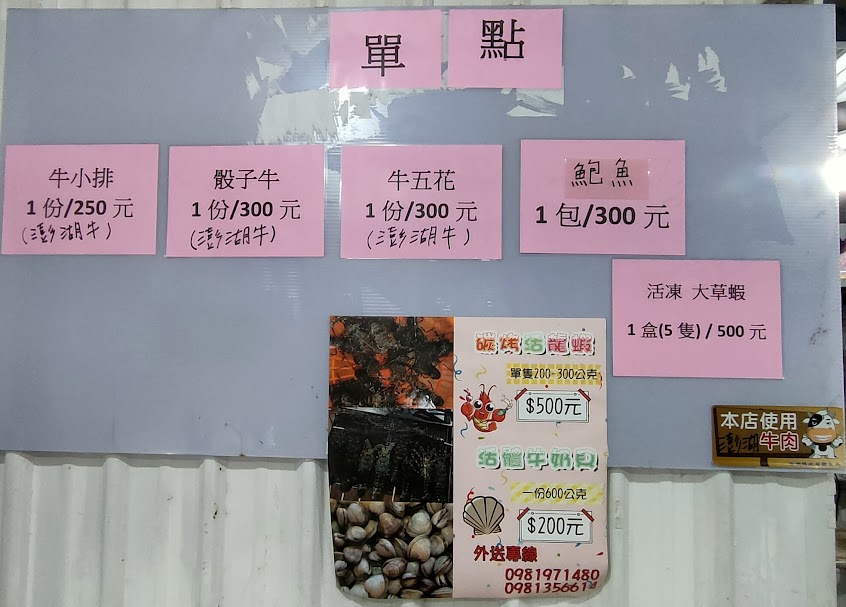 單點
牛小排
1份/250元
(澎湖牛)
骰子牛
1份/300元
(澎湖牛)
牛五花
1份/300元
(澎湖牛)
鮑魚
1包/300元
活凍 大草蝦
1盒(5隻) / 500元
碳烤活龍蝦
單隻200-300公克
$500元
活體牛奶貝
一份600公克
$200元
外送專線
0981971480
0981356614
本店使用
澎湖牛肉